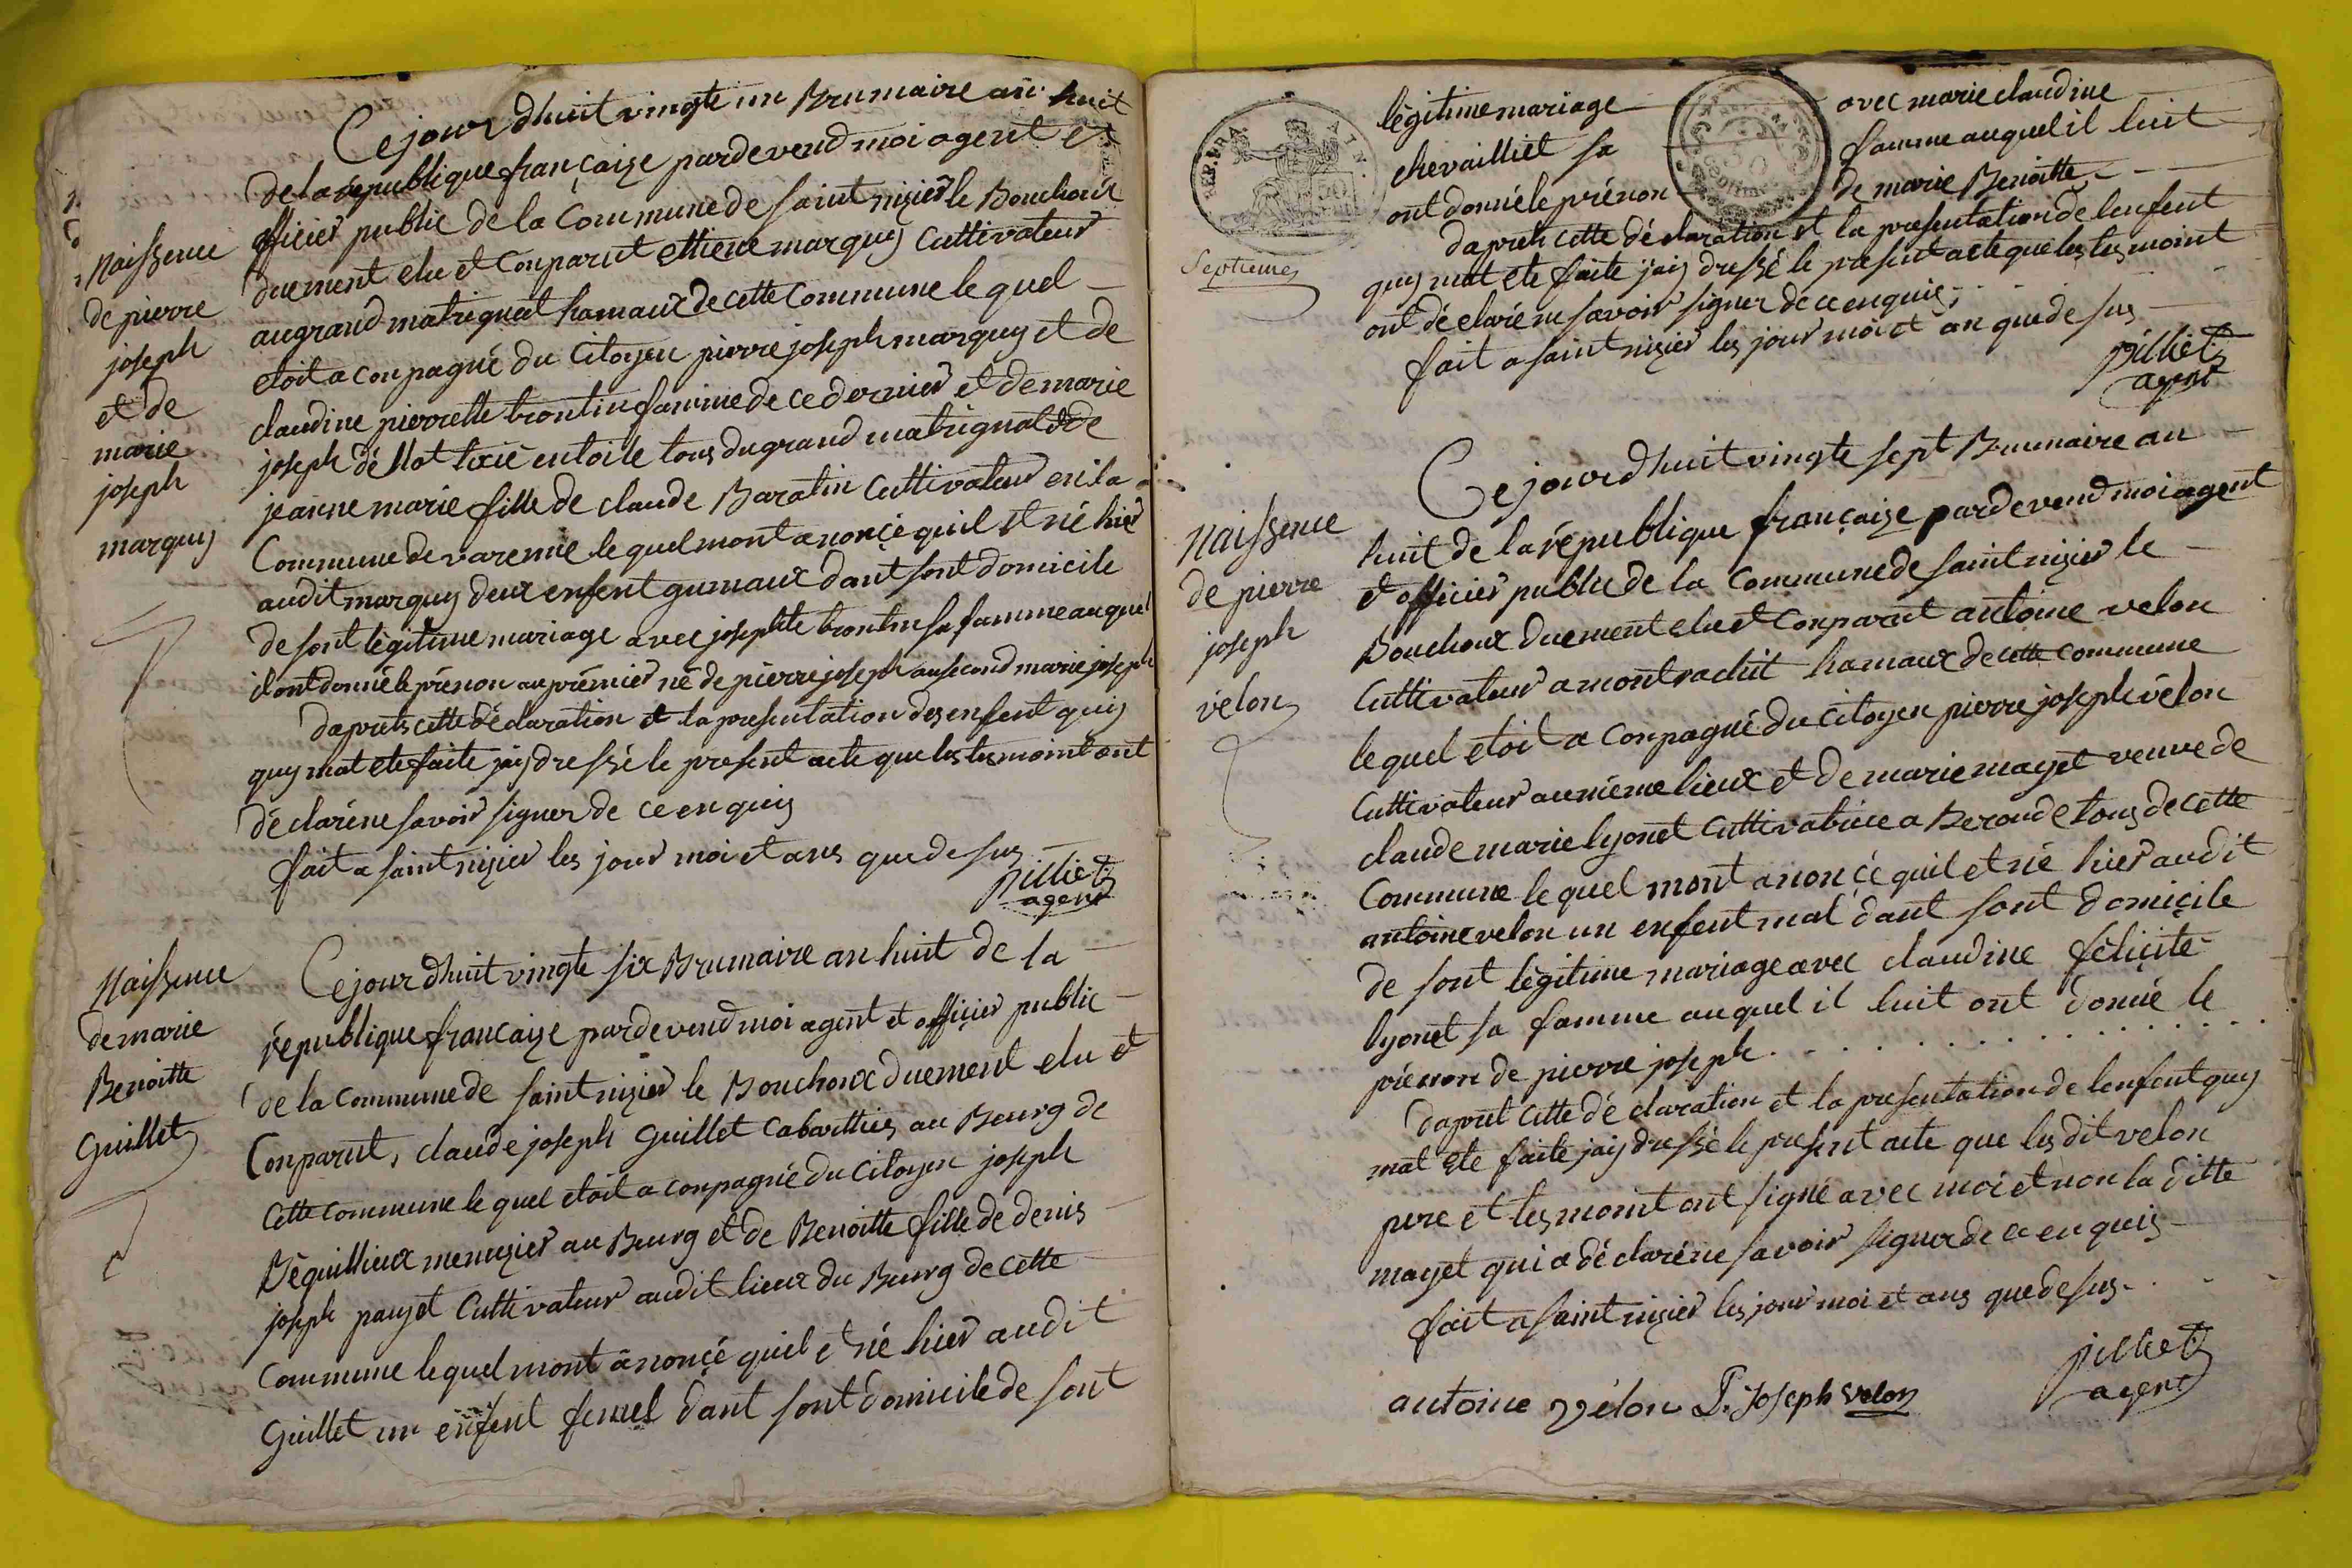 Naissence
de pierre
joseph
et de
marie
joseph
marquis
Ce jour d'huit vingte un Brumaire an huit
de la république françaize pardevend moi agent et
officier public de la Commune de saint nizier le Bouchoux
duement elu et Conparut ettiene marquis Cultivateur
au grand matrignat hamaux de cette Commune le quel
etoit a conpagné du Citoyen pierre joseph marquis et de
claudine pierrette brontin famme de ce dernier et de marie
joseph
jeanne marie fille de claude Baratin Cultivateur en la
Commune de varenne le quel mont anonçé quil et né hier
audit marquis deux enfent gumaux dant sont domicile
de sont légitime mariage avec josephte brontin sa famme auquel
il ont donné le prénon au prémier né de pierre joseph au second marie joseph
daprets cette déclaration et la presentation des enfent quis
quy mat ete faite jais dressé le present acte que les tesmoint ont
déclaré ne savoir signer de ce enquis
fait a saint nizier les jour moi et ans que desus
pilliet
agent
Naissence
de marie
Benoitte
Guillet
Ce jour d'huit vingte six Brumaire an huit de la
république françaize pardevend moi agent et officier public
de la Commune de saint nizier le Bouchoux duement elu et
Conparut, claude joseph Guillet Cabarttier au Bourg de
Cette Commune le quel etoit a conpagné du Citoyen joseph
Déguillieux menuzier au Bourg et de Benoitte fille de denis
joseph pauget Cultivateur audit lieux du Bourg de cette
Commune le quel mont anonçé quil et né hier audit
Guillet un enfent femel dant sont domicile de sont
REP. FRA
légitime mariage avec marie claudine
chevailliet sa famme auquel il luit
ont donné le prénon de marie Benoitte
Septieme
daprets cette déclaration et la presentation de lenfent
quy mat ete faite jais dressé le present acte que les tesmoint
ont déclaré ne savoir signer de ce enquis,
fait a saint nizier les jour moi et an que desus
pilliet
agent
Naissence
de pierre
joseph
velon
Ce jour d'huit vingte sept Brumaire an
huit de la république françaize pardevend moi agent
et officier public de la Commune de saint nizier le
Bouchoux duement elu et Conparut antoine velon
Cultivateur a montrachit hamaux de cette Commune
le quel etoit a Conpagné du Citoyen pierre joseph vélon
Cultivateur au méme lieux et de marie mayet veuve de
claude marie lyonet Cultivatrice a Beroude tous de cette
Commune le quel mont anonçé quil et né hier audit
antoine velon un enfent mal dant sont domiçile
de sont légitime mariage avec claudine féliçite
lyonet sa famme auquel il luit ont donné le
prénon de pierre joseph
daprét cette déclaration et la presentation de lenfent quy
mat ete faite jais dressé le present acte que les dit velon
pere et tesmoint ont signé avec moi et non la ditte
mayet qui a déclaré ne savoir signer de ce enquis
fait a saint nizier les jour moi et ans que desus
antoine vélon P. joseph velon
pilliet
agent